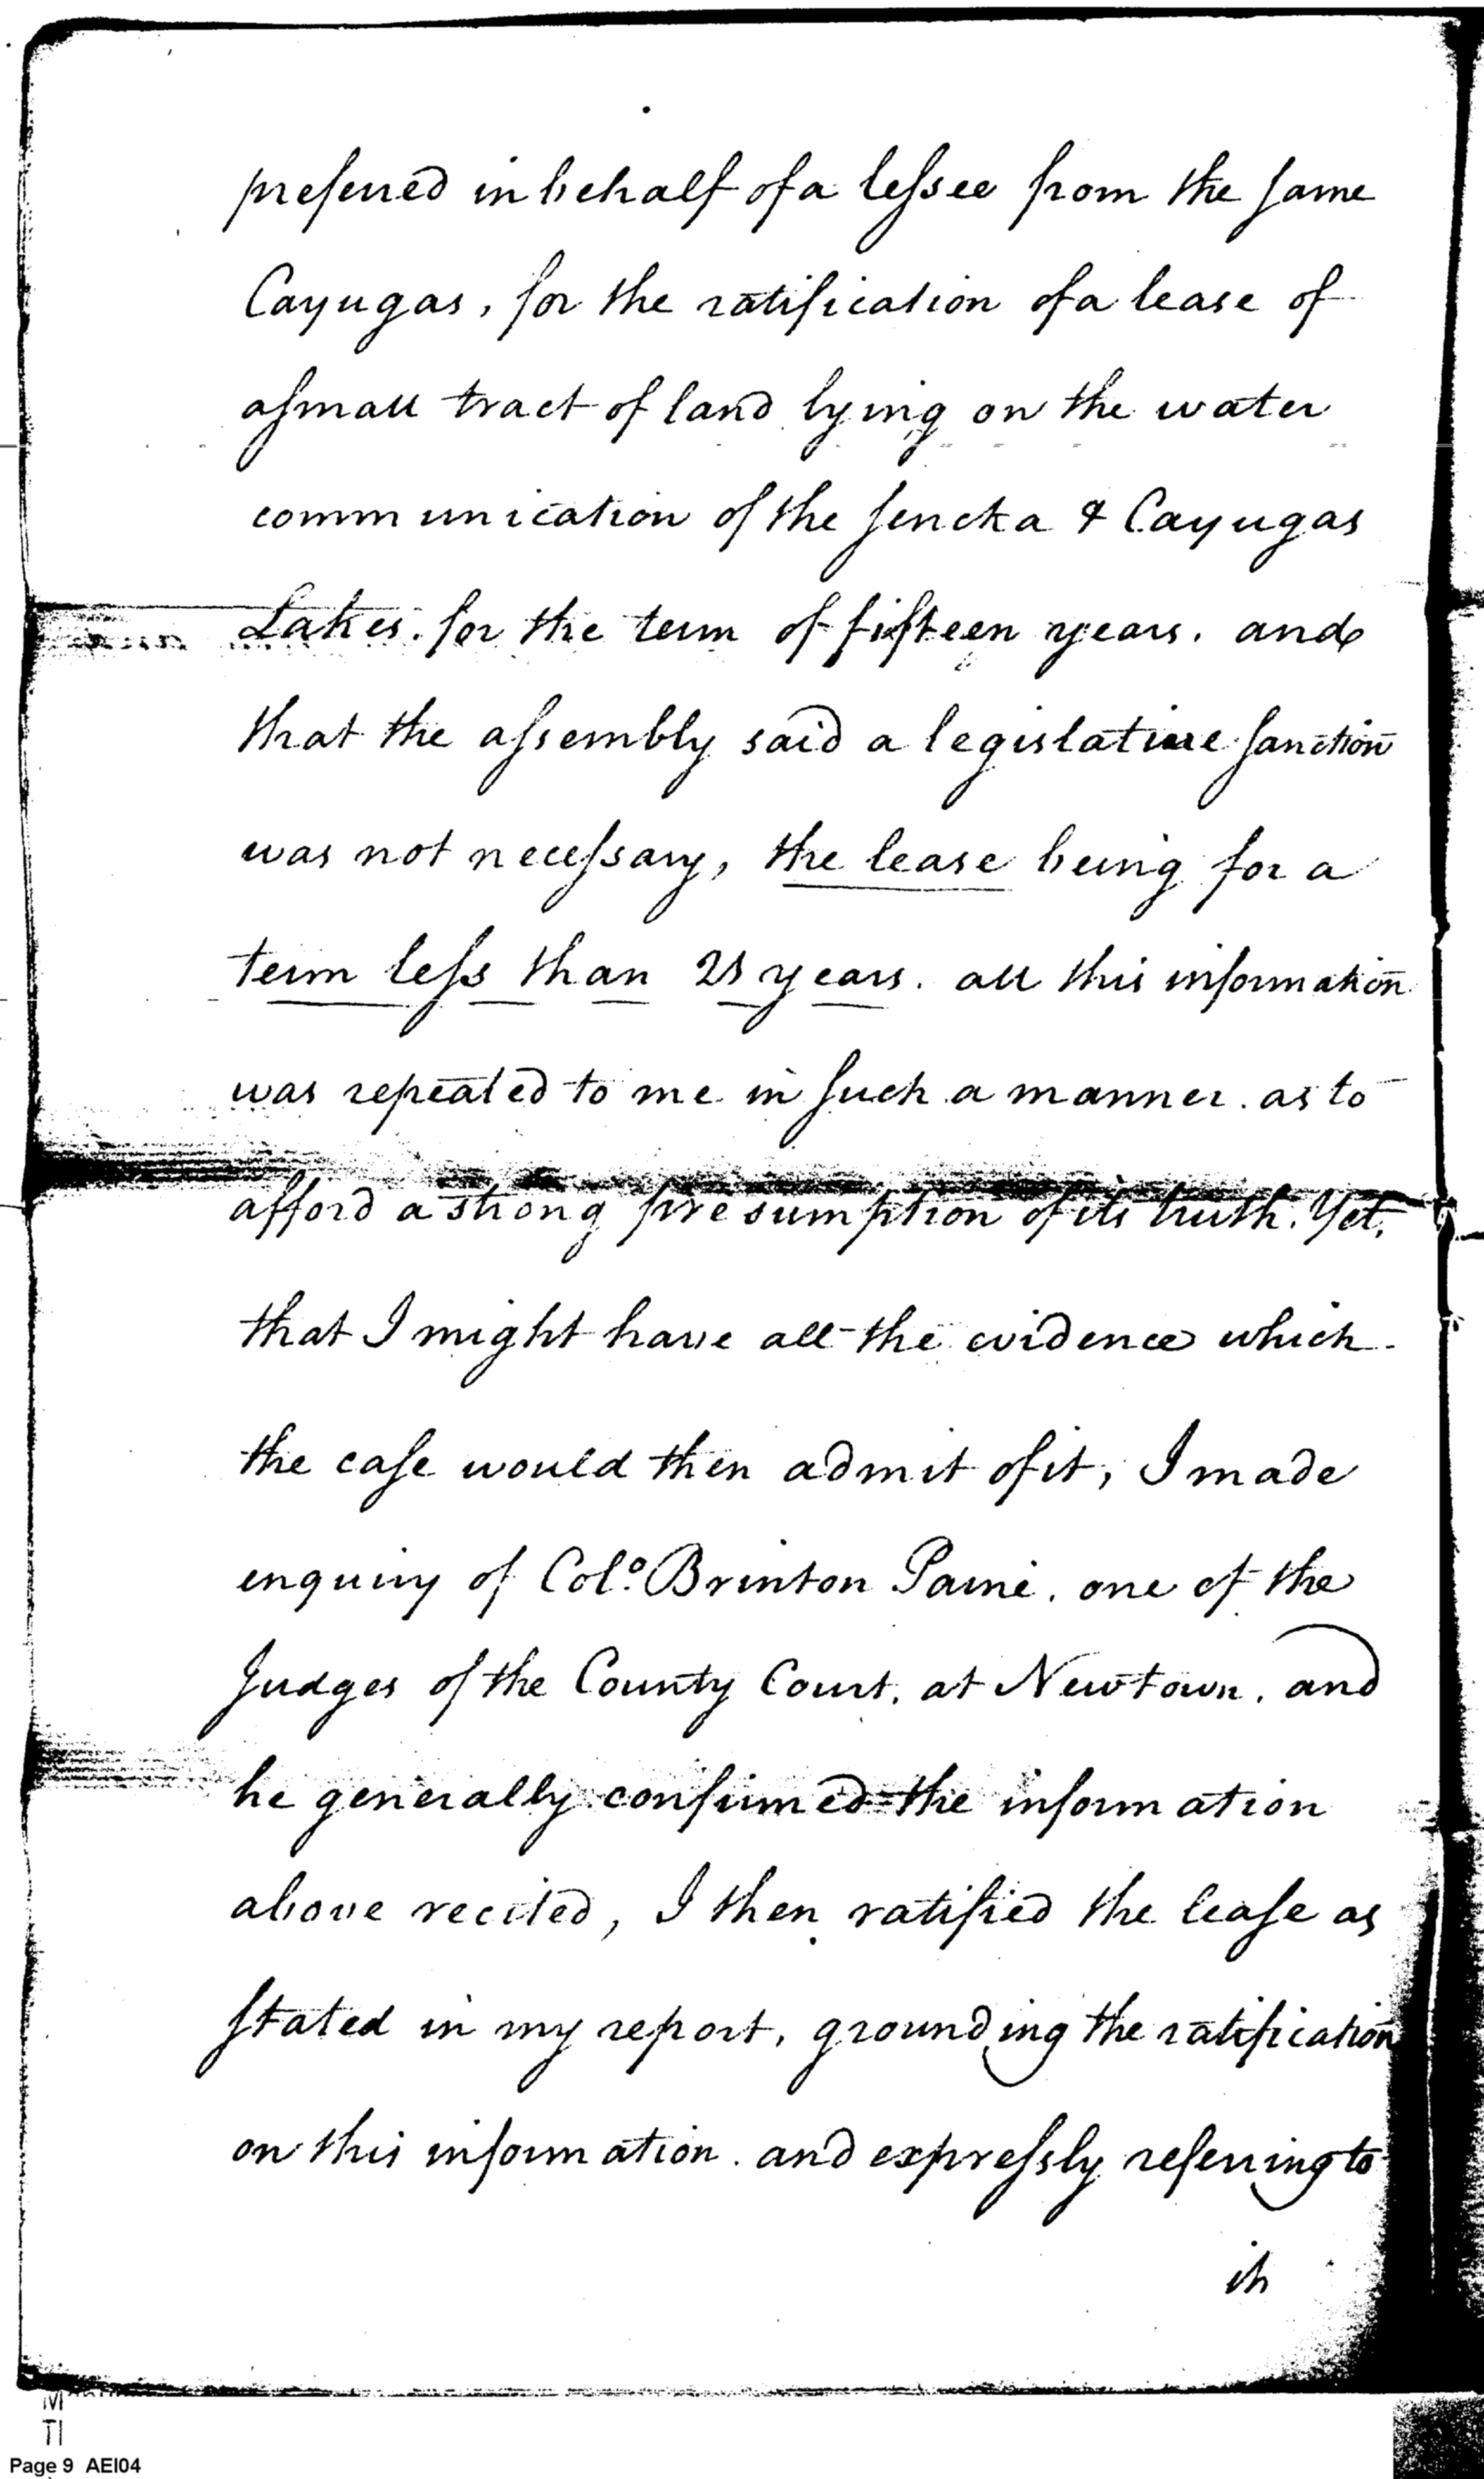 preferred in behalf of a lessee from the same
Cayugas, for the ratification of a lease of
a small tract of land lying on the water
communication of the Seneka & Cayugas
Lakes. for the term of fifteen years. and
that the assembly said a legislative sanction
was not necessary, the lease being for a
term less than 21 years. all this information
was repeated to me in such a manner. as to
afford a strong presumption of its truth. Yet,
that I might have all the evidence which
the case would then admit of it, I made
enquiry of Colo. Brinton Paine. one of the
Judges of the County Court. at Newtown. and
he generally confirmed the information
above recited, I then ratified the lease as
stated in my report, grounding the ratification
on this information. and expressly referring to
it
M
TI
Page 9 AEI04